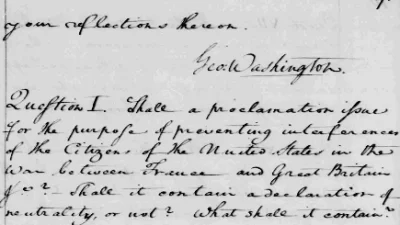 your reflections thereon.
Geo. Washington.
Question I. Shall a proclamation issue
for the purpose of preventing interferences
of the Citizens of the United States in the
War between France and Great Britain
&c? Shall it contain a declaration of
neutrality, or not? What shall it contain?